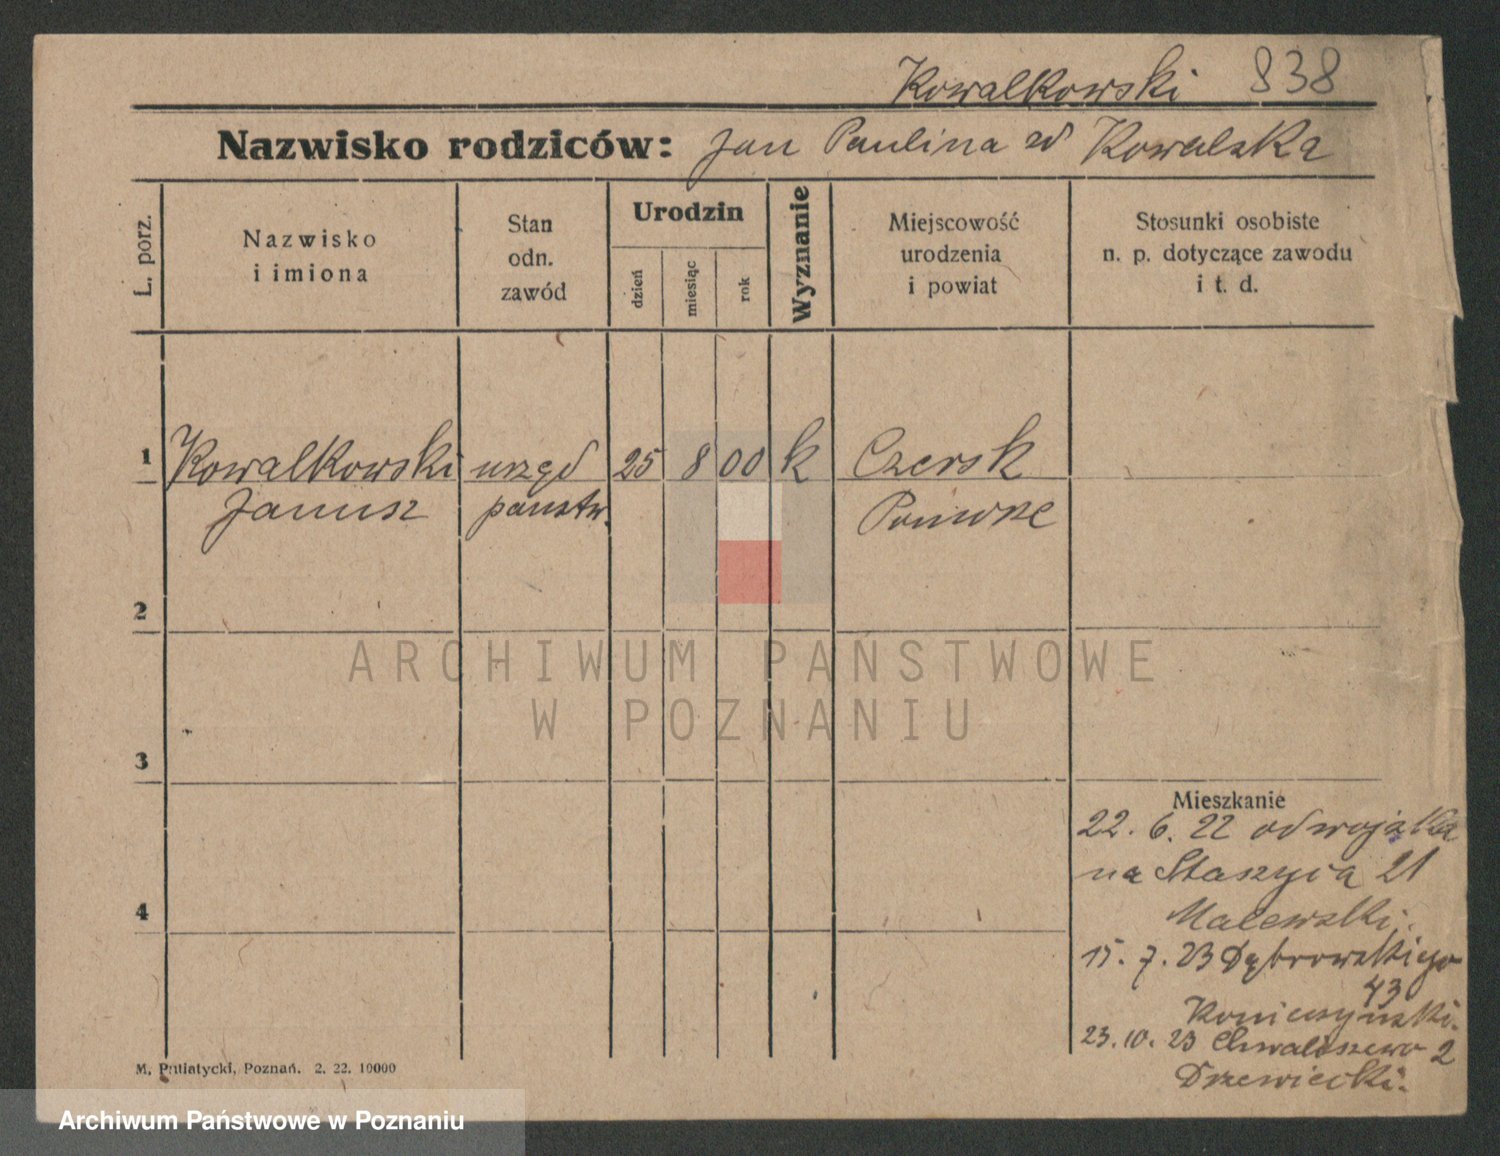 Kowalkowski 838
Nazwisko rodziców: Jan Paulina zd Kowalska
L. porz.
Nazwisko
i imiona
Stan
odn.
zawód
Urodzin
dzień
miesiąc
rok
Wyznanie
Miejscowość
urodzenia
i powiat
Stosunki osobiste
n. p. dotyczące zawodu
i t. d.
1 Kowalkowski urzęd 25 8 00 k Czersk
Janusz państw.
2
ARCHIWUM PAŃSTWOWE
W POZNANIU
3
Mieszkanie
22. 6. 22 od wojska
na Staszyca 21
4
Malewski.
15. 7. 23 Dąbrowskiego
43
Konieczyński.
23. 10. 23 Chwaliszewo 2
Drzewiecki.
M. Putiatycki, Poznań. 2. 22. 10000
Archiwum Państwowe w Poznaniu